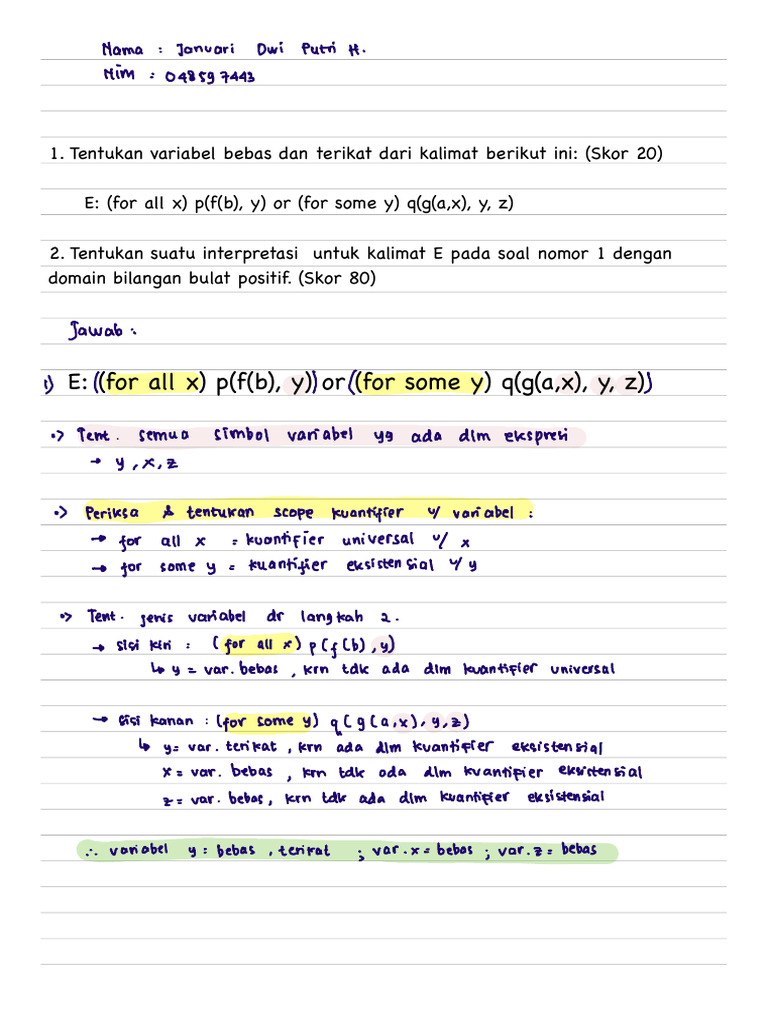 Nama : Januari Dwi Putri H.
Nim : 048597443
1. Tentukan variabel bebas dan terikat dari kalimat berikut ini: (Skor 20)
E: (for all x) p(f(b), y) or (for some y) q(g(a,x), y, z)
2. Tentukan suatu interpretasi untuk kalimat E pada soal nomor 1 dengan
domain bilangan bulat positif. (Skor 80)
Jawab :
1) E: ((for all x) p(f(b), y)) or ((for some y) q(g(a,x), y, z))
•> Tent. semua simbol variabel yg ada dlm ekspresi
→ y, x, z
•> Periksa & tentukan scope kuantifier u/ variabel :
→ for all x = kuantifier universal u/ x
→ for some y = kuantifier eksistensial u/ y
•> Tent. jenis variabel dr langkah 2.
→ sisi kiri : (for all x) p(f(b), y)
↳ y = var. bebas, krn tdk ada dlm kuantifier universal
→ sisi kanan : (for some y) q(g(a,x), y, z)
↳ y = var. terikat, krn ada dlm kuantifier eksistensial
x = var. bebas, krn tdk ada dlm kuantifier eksistensial
z = var. bebas, krn tdk ada dlm kuantifier eksistensial
∴ variabel y = bebas, terikat ; var. x = bebas ; var. z = bebas